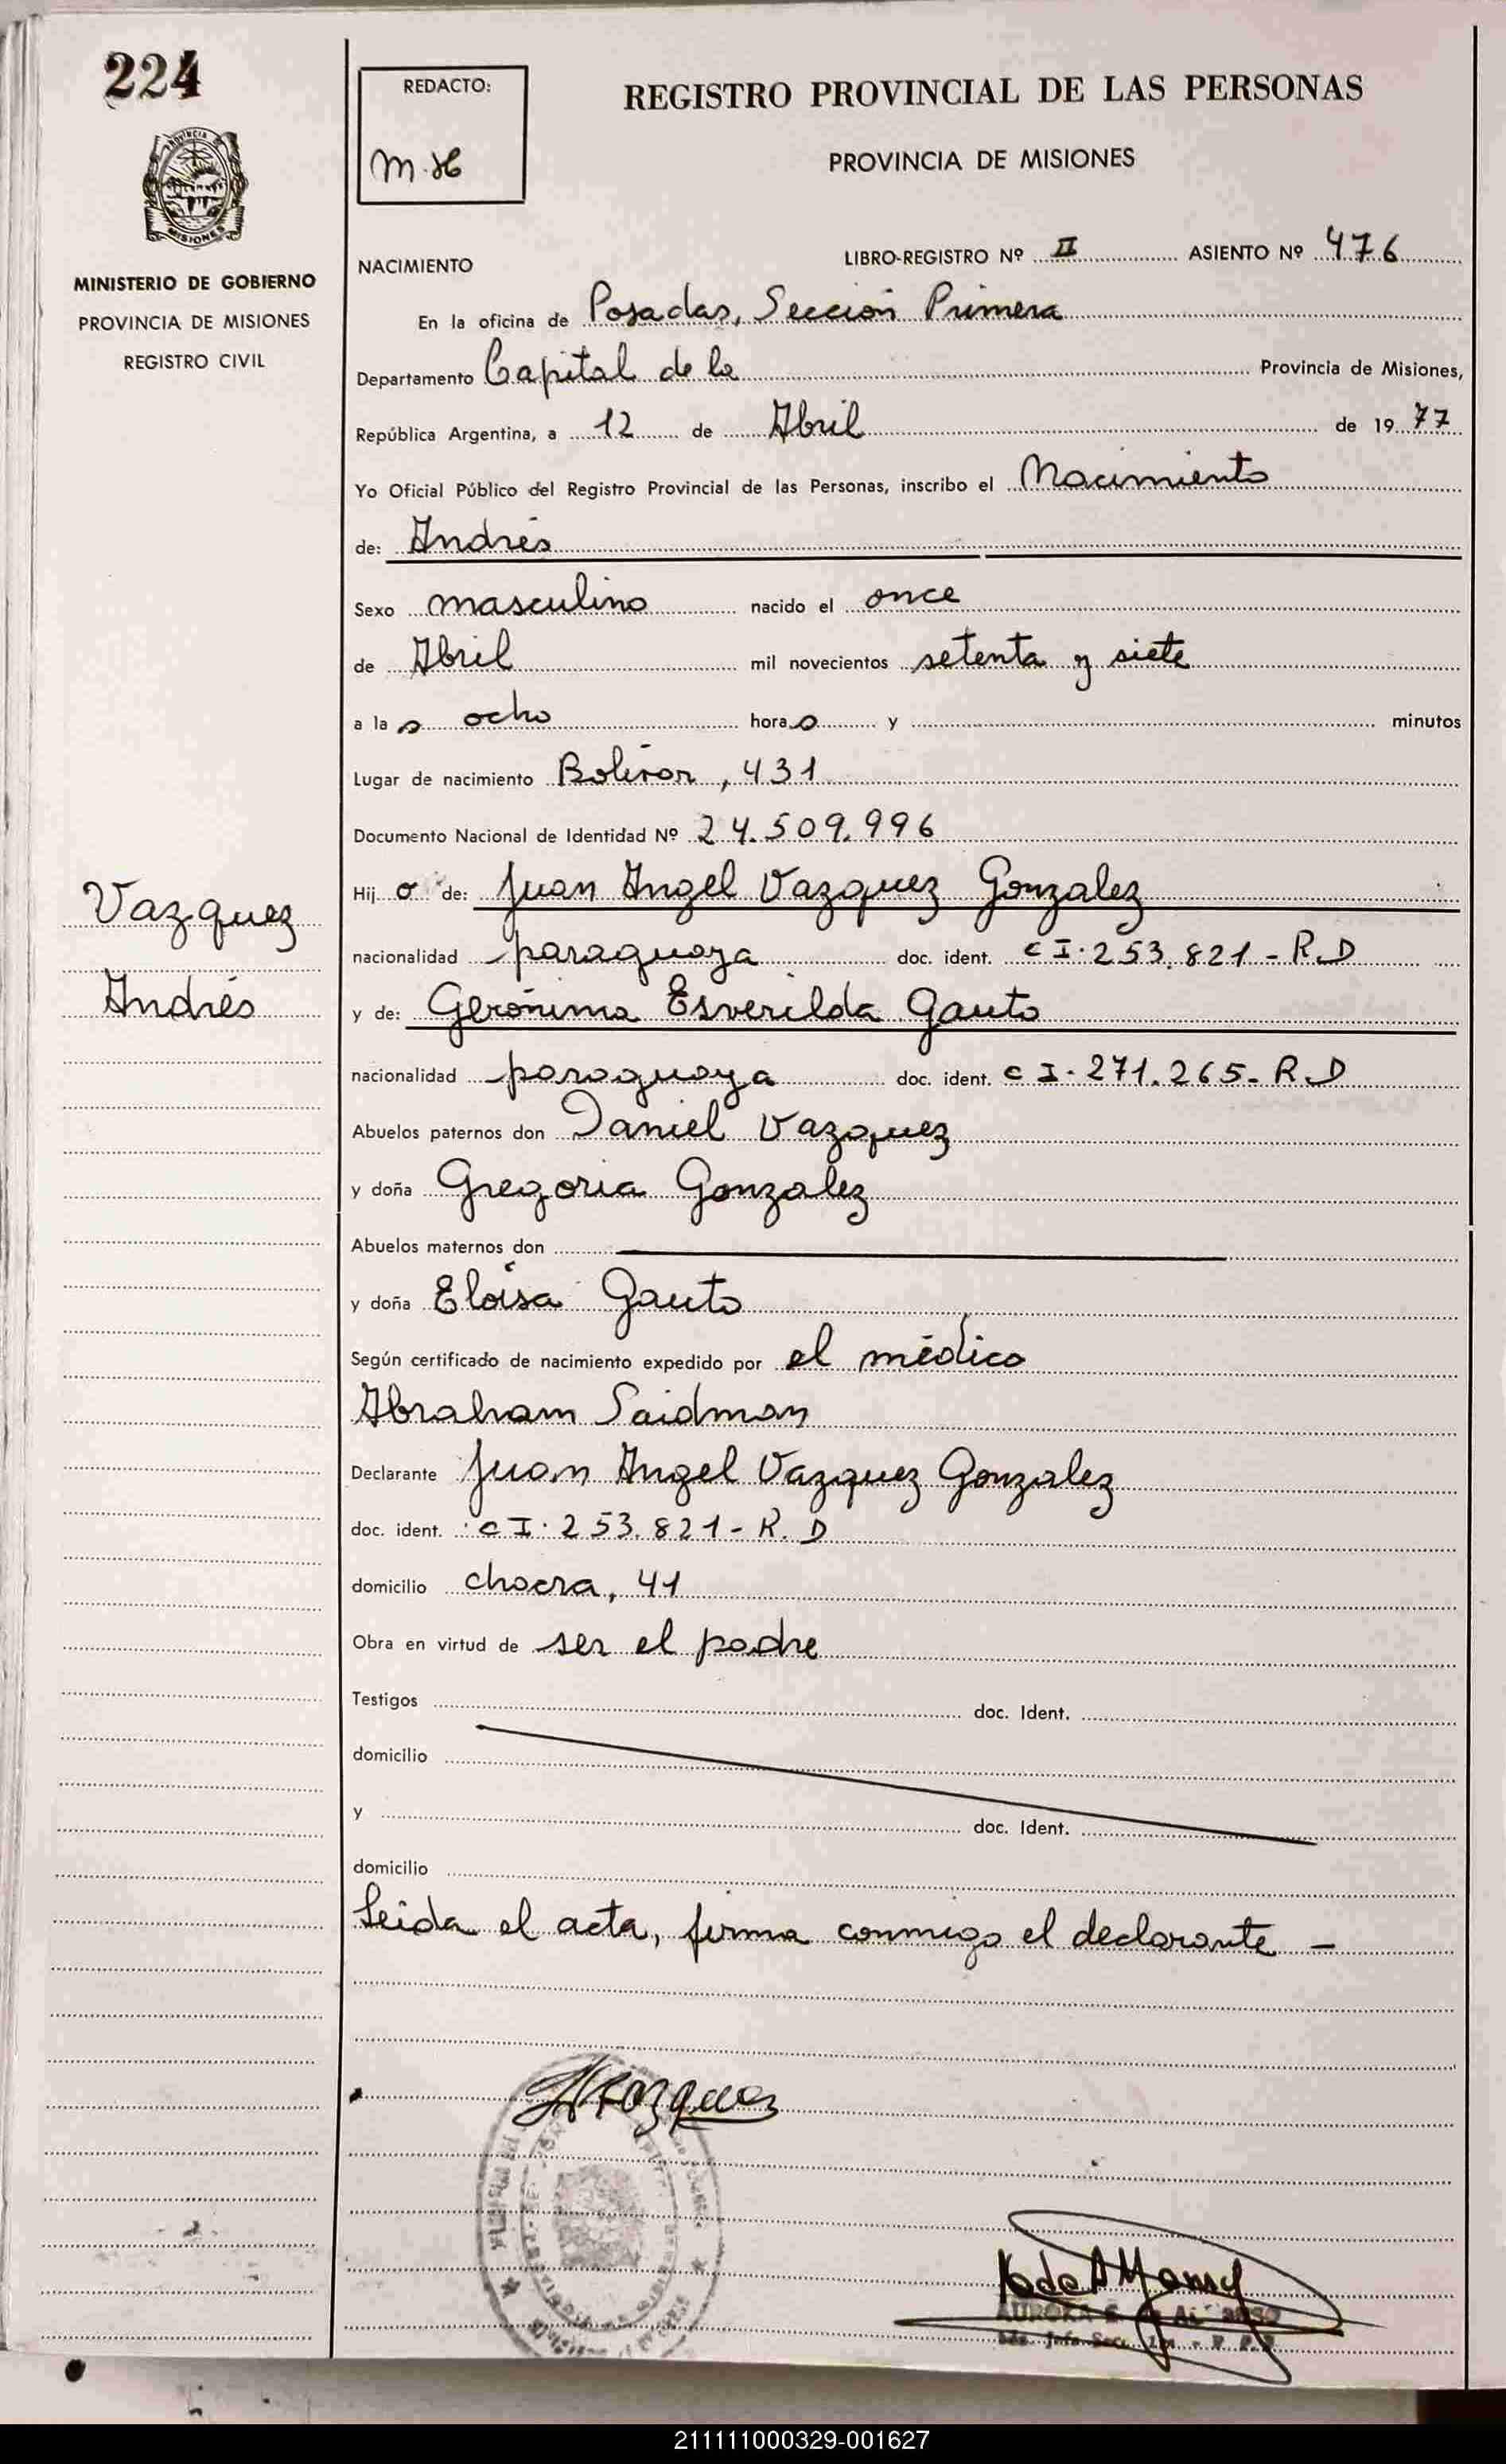 224
REDACTO:
M.H
REGISTRO PROVINCIAL DE LAS PERSONAS
PROVINCIA DE MISIONES
MINISTERIO DE GOBIERNO
PROVINCIA DE MISIONES
REGISTRO CIVIL
NACIMIENTO LIBRO-REGISTRO Nº II ASIENTO Nº 476
En la oficina de Posadas, Sección Primera
Departamento Capital de la Provincia de Misiones,
República Argentina, a 12 de Abril de 1977
Yo Oficial Público del Registro Provincial de las Personas, inscribo el Nacimiento
de: Andrés
Sexo masculino nacido el once
de Abril mil novecientos setenta y siete
a las ocho horas y minutos
Lugar de nacimiento Bolivar, 431
Documento Nacional de Identidad Nº 24.509.996
Hijo de: Juan Angel Vazquez Gonzalez
nacionalidad paraguaya doc. ident. CI. 253.821 - R.D
y de: Gerónima Esverilda Gauto
nacionalidad paraguaya doc. ident. CI. 271.265 - R.D
Abuelos paternos don Daniel Vazquez
y doña Gregoria Gonzalez
Abuelos maternos don
y doña Eloisa Gauto
Según certificado de nacimiento expedido por el médico
Abraham Saidman
Declarante Juan Angel Vazquez Gonzalez
doc. ident. CI. 253.821 - R.D
domicilio chacra, 41
Obra en virtud de ser el padre
Testigos doc. Ident.
domicilio
y doc. Ident.
domicilio
Leida el acta, firma conmigo el declarante -
Vazquez
Andrés
211111000329-001627